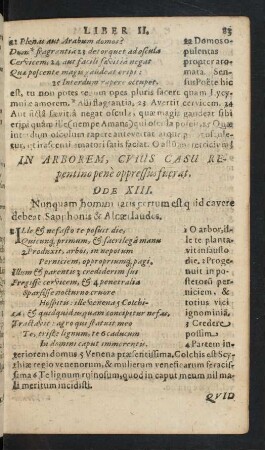 LIBER II. 83
21 Plenas aut Arabum domos?
Dum flagrantia 23 detorquet ad oscula
Cervicem, 24 aut facili sævitia negat
Quæ poscente magis gaudeat eripi:
Interdum rapere occupet.
22 Domos o-
pulentas
propter aro-
mata. Sen-
sus Poëte hic
est, tu non potes verum opes pluris facere quam Lycy-
mniæ amorem. flagrantia, 23 Avertit cervicem. 24
Aut ictu sævit à negat oscula, quæ magis gaudeat sibi
eripi
interdum osculum rapere antevertat
ut
IN ARBOREM, CVIVS CASV RE-
pentino penè oppressus fuerat.
ODE XIII.
Nunquam homini satis certum est quid cavere
debeat. Sapphonis & Alcæi laudes.
Ille & nefasto te posuit die,
Quicunq, primum, & sacrilega manu
2 Produxit, arbor, in nepotum
Perniciem, opprobriumq, pagi,
Illum & parentis 3 crediderim sui
Fregisse cervicem, & 4 penetralia
Sparsisse nocturno cruore
Hospitis: ille venena 5 Colchi-
ca, & quidquid usquam concipitur nefas,
Tractavit: agro qui statuit meo
Te, triste lignum, te 6 caducum
In domini caput immerentis.
1 O arbor, il-
le te planta-
vit infausto
die. 2 Proge-
nuit in per-
niciem, &
totius vici
ignominiã.
3 Credere
possim.
4 Partem in-
teriorem domus 5 Venena præsentissima. Colchis est Scy-
thiæ regio venenorum, & mulierum veneficarum feracis-
sima 6 Te lignum ruinosum, quod in caput meum nil ma-
li meritum incidisti.
QVID